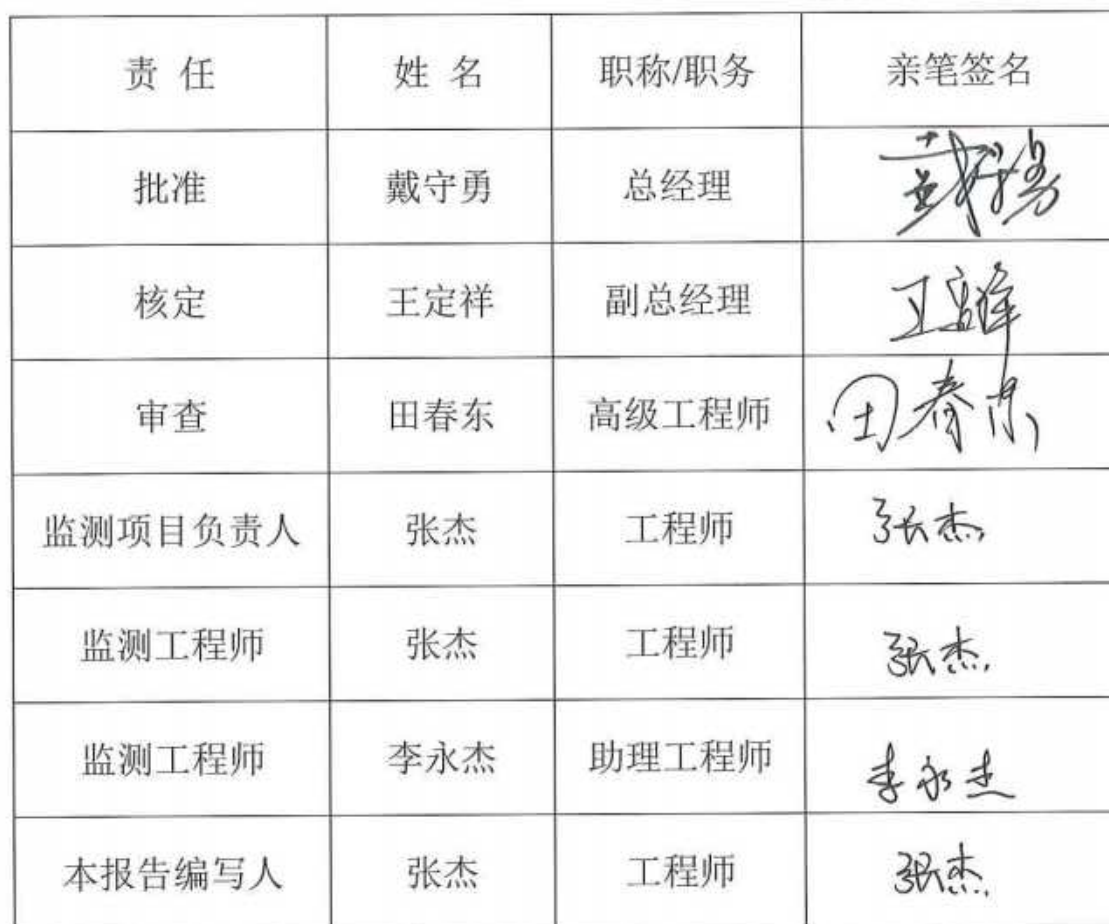 责 任 姓 名 职称/职务 亲笔签名
批准 戴守勇 总经理 戴守勇
核定 王定祥 副总经理
审查 田春东 高级工程师 田春东
监测项目负责人 张杰 工程师 张杰
监测工程师 张杰 工程师 张杰
监测工程师 李永杰 助理工程师 李永杰
本报告编写人 张杰 工程师 张杰